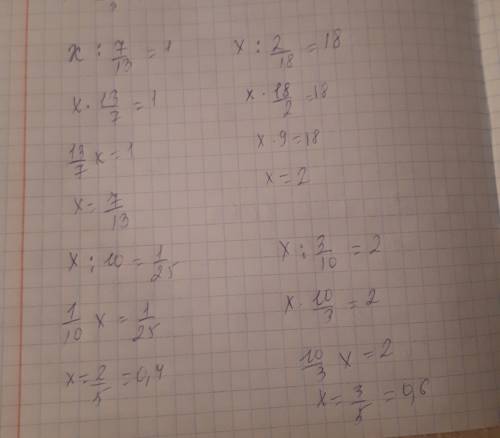 x : 7/13 = 1
x · 13/7 = 1
13/7 x = 1
x = 7/13
x : 10 = 1/25
1/10 x = 1/25
x = 2/5 = 0,4
x : 2/18 = 18
x · 18/2 = 18
x · 9 = 18
x = 2
x : 3/10 = 2
x · 10/3 = 2
10/3 x = 2
x = 3/5 = 0,6